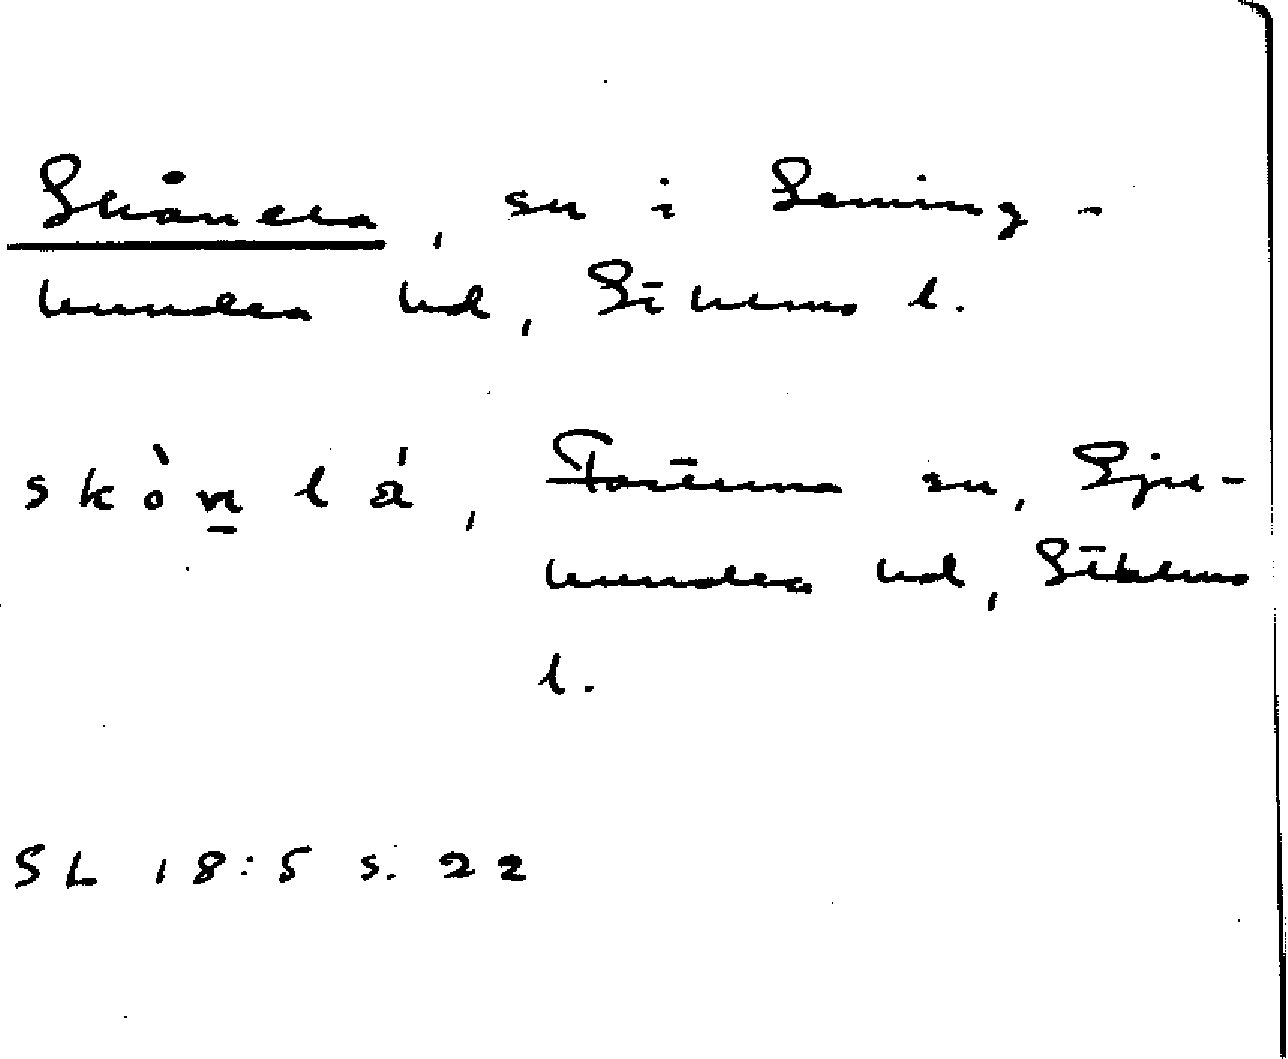 Skånela, sn i Seming-
hundra hd, Sthlms l.
skò̀n̲ lá, Torstuna sn, Sju-
hundra hd, Sthlms
l.
SL 18:5 s. 22